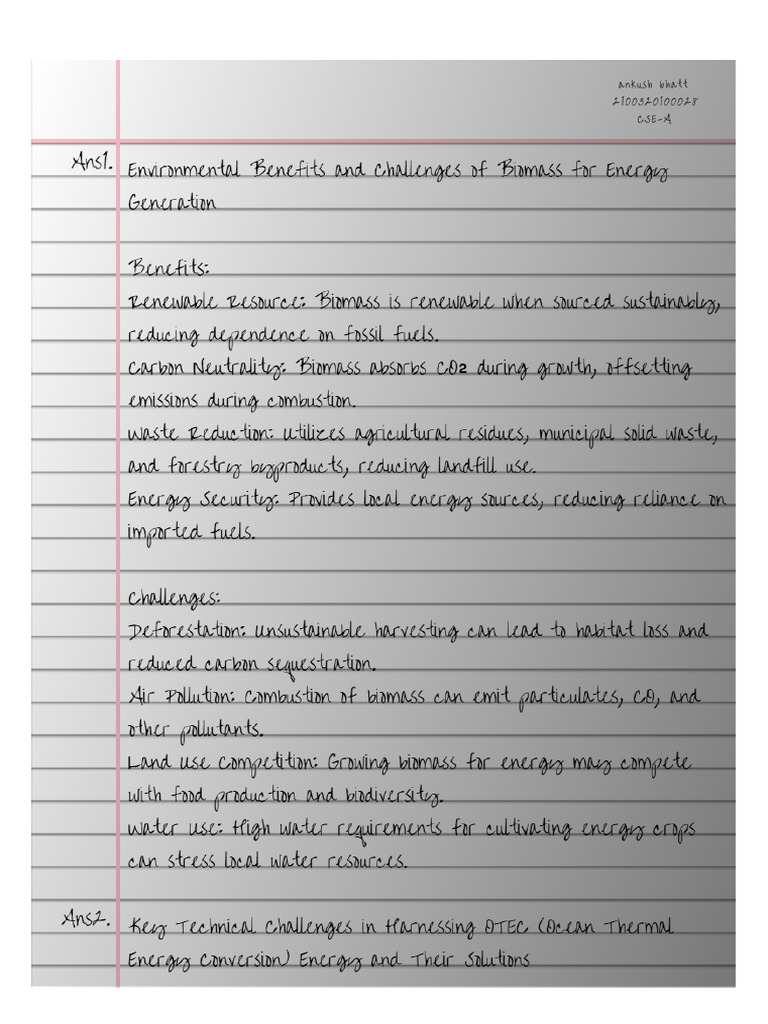 ankush bhatt
2100320100028
CSE-A
Ans1. Environmental Benefits and Challenges of Biomass for Energy
Generation
Benefits:
Renewable Resource: Biomass is renewable when sourced sustainably,
reducing dependence on fossil fuels.
Carbon Neutrality: Biomass absorbs CO2 during growth, offsetting
emissions during combustion.
Waste Reduction: Utilizes agricultural residues, municipal solid waste,
and forestry byproducts, reducing landfill use.
Energy Security: Provides local energy sources, reducing reliance on
imported fuels.
Challenges:
Deforestation: Unsustainable harvesting can lead to habitat loss and
reduced carbon sequestration.
Air Pollution: Combustion of biomass can emit particulates, CO, and
other pollutants.
Land Use Competition: Growing biomass for energy may compete
with food production and biodiversity.
Water Use: High water requirements for cultivating energy crops
can stress local water resources.
Ans2. Key Technical Challenges in Harnessing OTEC (Ocean Thermal
Energy Conversion) Energy and Their Solutions